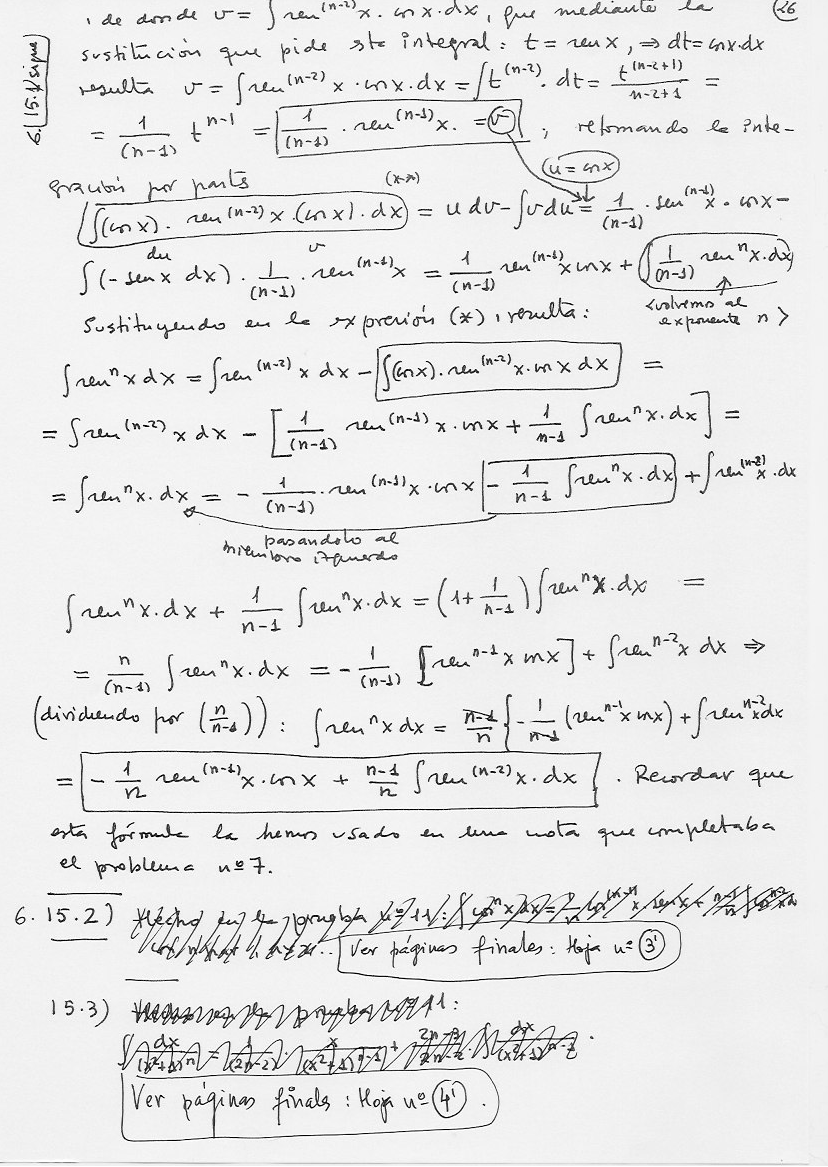 26
6.15.1/sigue
, de donde v = ∫ sen⁽ⁿ⁻²⁾x · cos x · dx, que mediante la
sustitución que pide esta integral: t = sen x, ⇒ dt = cos x · dx
resulta v = ∫ sen⁽ⁿ⁻²⁾ x · cos x · dx = ∫ t⁽ⁿ⁻²⁾ · dt = t⁽ⁿ⁻²⁺¹⁾/(n-2+1) =
= 1/(n-1) t^(n-1) = 1/(n-1) · sen⁽ⁿ⁻¹⁾x. = v ; retomando la inte-
u = cos x
gración por parts
(x-x)
∫(cos x) · sen⁽ⁿ⁻²⁾x · (cos x) · dx = u dv - ∫ v du = 1/(n-1) · sen⁽ⁿ⁻¹⁾x · cos x -
du v
∫(-sen x dx) · 1/(n-1) · sen⁽ⁿ⁻¹⁾x = 1/(n-1) sen⁽ⁿ⁻¹⁾x cos x + ∫ 1/(n-1) senⁿx · dx
<volvemos al
exponente n>
Sustituyendo en la expresión (*), resulta:
∫ senⁿx dx = ∫ sen⁽ⁿ⁻²⁾ x dx - ∫(cos x) · sen⁽ⁿ⁻²⁾x · cos x dx =
= ∫ sen⁽ⁿ⁻²⁾ x dx - [1/(n-1) sen⁽ⁿ⁻¹⁾x · cos x + 1/n-1 ∫ senⁿx · dx] =
= ∫ senⁿx · dx = - 1/(n-1) · sen⁽ⁿ⁻¹⁾x · cos x - 1/n-1 ∫ senⁿx · dx + ∫ sen⁽ⁿ⁻²⁾x · dx
pasandolo al
miembro izquierdo
∫ senⁿx · dx + 1/n-1 ∫ senⁿx · dx = (1 + 1/n-1) ∫ senⁿx · dx =
= n/(n-1) ∫ senⁿx · dx = - 1/(n-1) [senⁿ⁻¹x cos x] + ∫ senⁿ⁻²x dx ⇒
(dividiendo por (n/n-1)) : ∫ senⁿx dx = n-1/n { - 1/n-1 (senⁿ⁻¹x cos x) + ∫ senⁿ⁻²x dx
= - 1/n sen⁽ⁿ⁻¹⁾x · cos x + n-1/n ∫ sen⁽ⁿ⁻²⁾x · dx } . Recordar que
esta fórmula la hemos usado en una nota que completaba
el problema nº 7.
6. 15.2) Hecho en la prueba nº 11: ∫ cosⁿx dx = 1/n cos⁽ⁿ⁻¹⁾x sen x + n-1/n ∫ cosⁿ⁻²x dx
Ver páginas finales: Hoja nº 3'
15.3) Hecho en la prueba nº 11:
∫ dx/(x²+1)ⁿ = 1/(2n-2) · x/(x²+1)ⁿ⁻¹ + 2n-3/2n-2 · ∫ dx/(x²+1)ⁿ⁻¹ .
Ver páginas finales: Hoja nº 4' .